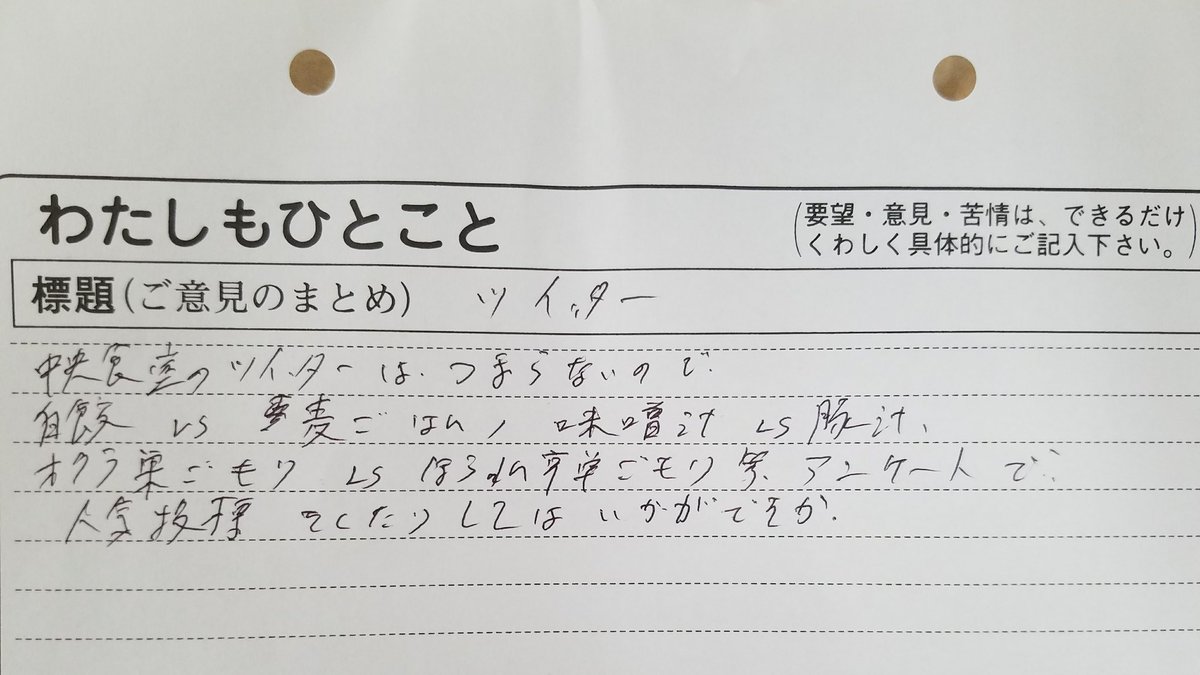 わたしもひとこと
(要望・意見・苦情は、できるだけ
くわしく具体的にご記入下さい。)
標題(ご意見のまとめ) ツイッター
中央食堂のツイッターは、つまらないので、
白飯 vs 麦ごはん、味噌汁 vs 豚汁、
オクラ巣ごもり vs ほうれん草巣ごもり等、アンケートで、
人気投票をしたりしてはいかがですか。